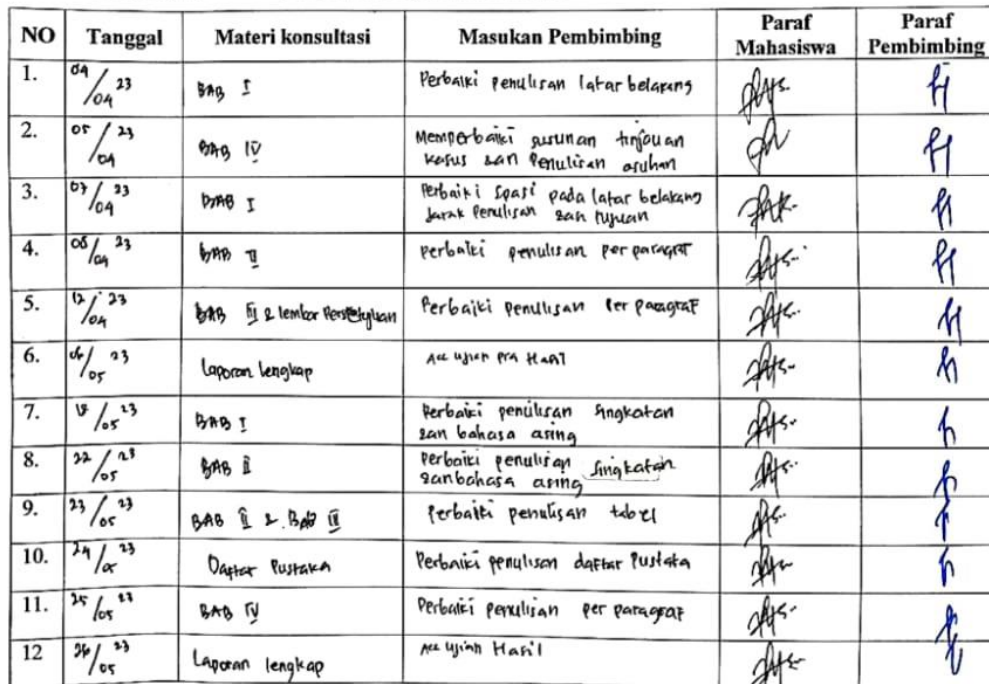 NO Tanggal Materi konsultasi Masukan Pembimbing Paraf Mahasiswa Paraf Pembimbing
1. 04/04 23 BAB I Perbaiki penulisan latar belakang
2. 05/04 23 BAB IV Memperbaiki susunan tinjauan
kasus dan Penulisan asuhan
3. 07/04 23 BAB I Perbaiki spasi pada latar belakang
Jarak Penulisan dan tujuan
4. 08/04 23 BAB II Perbaiki penulisan per paragraf
5. 12/04 23 BAB III & lembar Persetujuan Perbaiki penulisan Per paragraf
6. /05 23 Laporan lengkap Acc ujian pra Hasil
7. /05 23 BAB I Perbaiki penulisan singkatan
dan bahasa asing
8. 22/05 23 BAB II Perbaiki penulisan singkatan
dan bahasa asing
9. 23/05 23 BAB II & BAB III Perbaiki penulisan tabel
10. 24/05 23 Daftar Pustaka Perbaiki penulisan daftar Pustaka
11. 25/05 23 BAB IV Perbaiki penulisan per paragraf
12 26/05 23 Laporan lengkap Acc Ujian Hasil